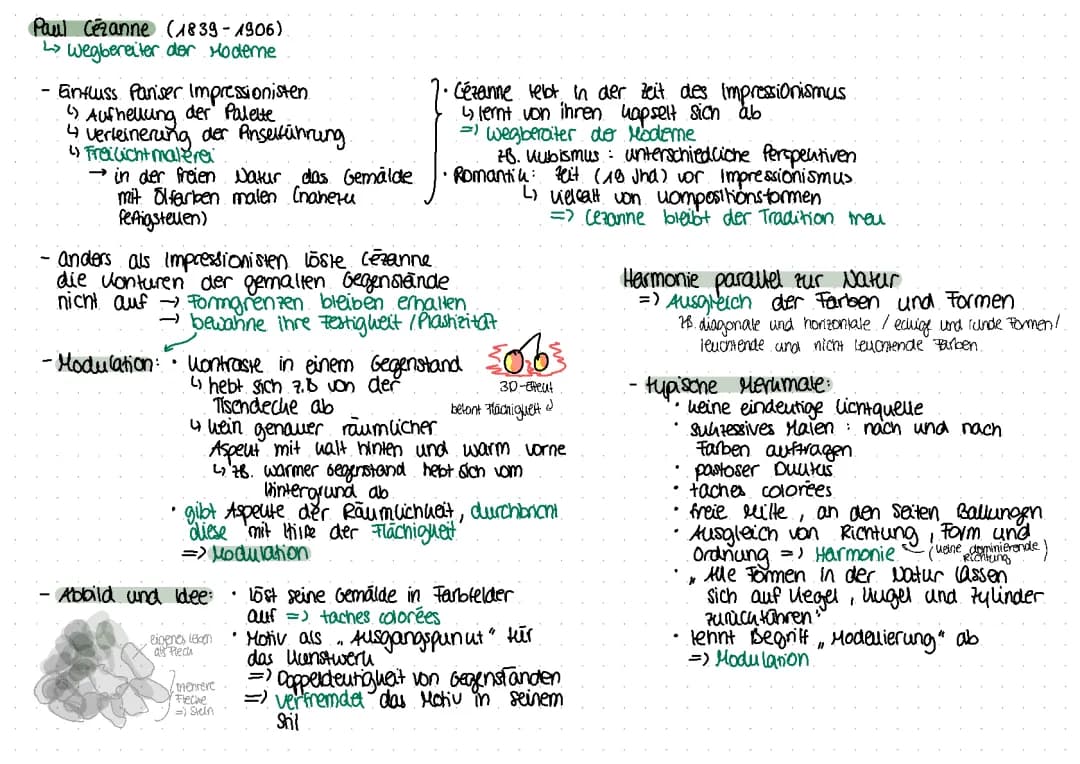 Paul Cézanne (1839-1906)
↳ Wegbereiter der Moderne
- Einfluss Pariser Impressionisten
↳ Aufhellung der Palette
↳ Verfeinerung der Pinselführung
↳ Freilichtmalerei
→ in der freien Natur das Gemälde
mit Ölfarben malen (nahezu
fertigstellen)
· Cézanne lebt in der Zeit des Impressionismus
↳ lernt von ihren kapselt sich ab
=> Wegbereiter der Moderne
zB. Kubismus: unterschiedliche Perspektiven
· Romantik: Zeit (19 Jhd) vor Impressionismus
↳ Vielfalt von Kompositionsformen
=> Cezanne bleibt der Tradition treu
- anders als Impressionisten löste Cézanne
die Konturen der gemalten Gegenstände
nicht auf → Formgrenzen bleiben erhalten
→ bewahre ihre Festigkeit / Plastizität
- Modulation: · Kontraste in einem Gegenstand
↳ hebt sich z.B von der
Tischdecke ab
↳ kein genauer räumlicher
Aspekt mit kalt hinten und warm vorne
↳ zB. warmer Gegenstand hebt sich vom
Hintergrund ab
· gibt Aspekte der Räumlichkeit, durchbricht
diese mit Hilfe der Flächigkeit
=> Modulation
3D-Effekt
betont Flächigkeit
- Abbild und Idee: · löst seine Gemälde in Farbfelder
auf => taches colorées
· Motiv als „Ausgangspunkt" für
das Kunstwerk
=> Doppeldeutigkeit von Gegenständen
=> verfremdet das Motiv in seinem
Stil
eigenes Leben
als Fleck
mehrere
Flecke
=> Stein
Harmonie parallel zur Natur
=> Ausgleich der Farben und Formen
zB. diagonale und horizontale / eckige und runde Formen/
leuchtende und nicht leuchtende Farben
- typische Merkmale:
· keine eindeutige Lichtquelle
· sukzessives Malen: nach und nach
Farben auftragen
· pastoser Duktus
· taches colorées
· freie Mitte, an den Seiten Ballungen
· Ausgleich von Richtung, Form und
Ordnung => Harmonie (keine dominierende
Richtung)
· „Alle Formen in der Natur lassen
sich auf Kegel, Kugel und Zylinder
zurückführen"
· lehnt Begriff „Modellierung" ab
=> Modulation